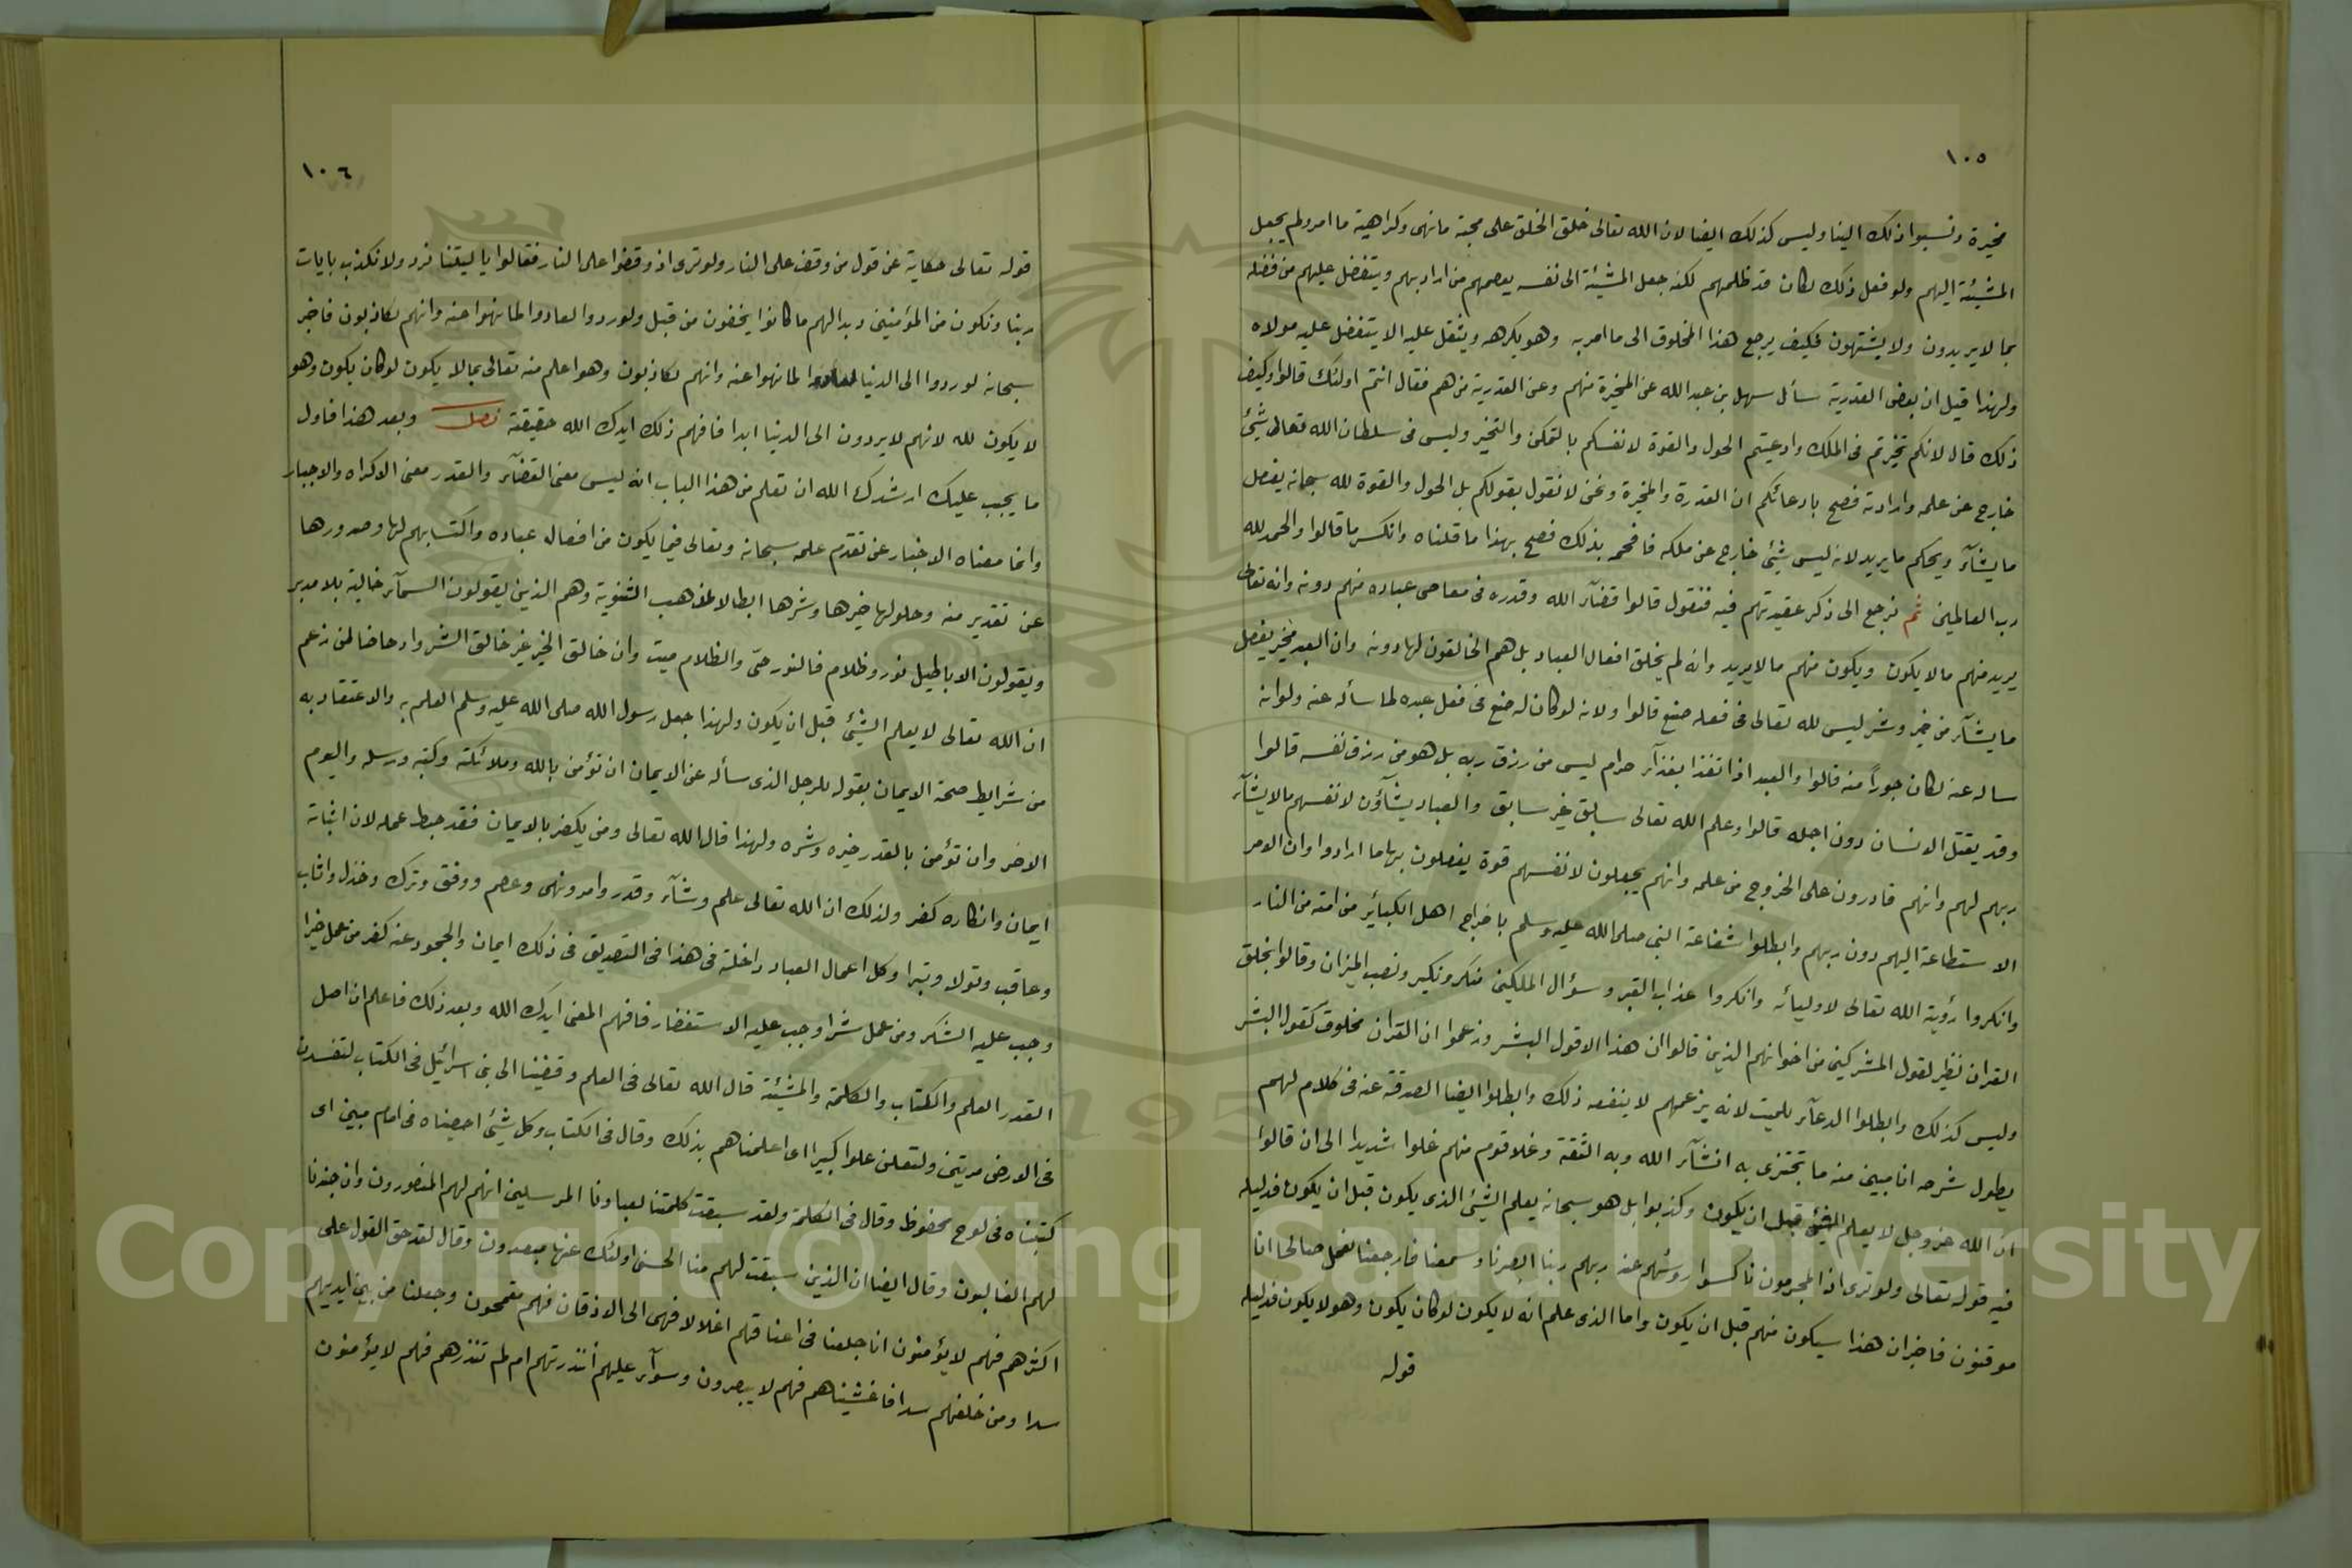 ١٠٥
مخيرة ونسبوا ذلك الينا وليس كذلك ايضا لان الله تعالى خلق الخلق على محبة ما نهى وكراهية ما امر ولم يجعل
المشيئة اليهم ولو فعل ذلك لكان قد ظلمهم لكنه جعل المشيئة الى نفسه يعصمهم من ارادتهم ويتفضل عليهم من فضله
بما لا يريدون ولا يشتهون فكيف يرجع هذا المخلوق الى ما امر به وهو يكرهه ويثقل عليه الا يتفضل عليه مولاه
ولهذا قيل ان بعض القدرية سأل سهل بن عبد الله عن المخيرة منهم وعن القدرية من هم فقال انتم اولئك قالوا وكيف
ذلك قال لانكم تخيرتم في الملك وادعيتم الحول والقوة لانفسكم بالتمكن والتخير وليس في سلطان الله تعالى شيئ
خارج عن علمه وارادته فصح بادعائكم ان القدرة والمخيرة ونحن لا نقول بقولكم بل الحول والقوة لله سبحانه يفعل
ما يشآء ويحكم ما يريد لانه ليس شيئ خارج عن ملكه فافحم بذلك فصح بهذا ما قلناه وانكسر ما قالوا والحمد لله
رب العالمين ثم نرجع الى ذكر عقيدتهم فيه فنقول قالوا قضآء الله وقدره في معاصى عباده منهم دونه وانه تعالى
يريد منهم ما لا يكون ويكون منهم ما لا يريد وانه لم يخلق افعال العباد بل هم الخالقون لها دونه وان العبد مخير يفعل
ما يشآء من خير وشر ليس لله تعالى في فعله صنع قالوا ولانه لو كان له صنع في فعل عبده لما سأله عنه ولو انه
ساله عنه لكان جوراً منه قالوا والعبد اذا تغذا بغذآء حرام ليس من رزق ربه بل هو من رزق نفسه قالوا
وقد يقتل الانسان دون اجله قالوا وعلم الله تعالى سابق غير سابق والعباد يشآؤن لانفسهم ما لا يشآء
ربهم لهم وانهم قادرون على الخروج من علمه وانهم يجعلون لانفسهم قوة يفعلون بها ما ارادوا وان الامر
الاستطاعة اليهم دون ربهم وابطلوا شفاعة النبي صلى الله عليه وسلم باخراج اهل الكبائر من امته من النار
وانكروا رؤية الله تعالى لاوليائه وانكروا عذاب القبر وسؤال الملكين منكر ونكير ونصب الميزان وقالوا بخلق
القران نظير لقول المشركين من اخوانهم الذين قالوا ان هذا الا قول البشر وزعموا ان القرآن مخلوق كقول البشر
وليس كذلك وابطلوا الدعآء للميت لانه بزعمهم لا ينفعه ذلك وابطلوا ايضا الصدقة عنه في كلام لهم
يطول شرحه انا مبين منه ما تجتزى به انشآء الله وبه الثقة وغلا قوم منهم غلوا شديدا الى ان قالوا
ان الله عز وجل لا يعلم الشيئ قبل ان يكون وكذبوا بل هو سبحانه يعلم الشيئ الذى يكون قبل ان يكون فدليله
فيه قوله تعالى ولو ترى اذ المجرمون ناكسوا رؤسهم عند ربهم ربنا ابصرنا وسمعنا فارجعنا نعمل صالحا انا
موقنون فاخبر ان هذا سيكون منهم قبل ان يكون واما الذى علم انه لا يكون لو كان يكون وهو لا يكون فدليله
قوله
١٠٦
قوله تعالى حكاية عن قول من وقف على النار ولو ترى اذ وقفوا على النار فقالوا يا ليتنا نرد ولا نكذب بايات
ربنا ونكون من المؤمنين وبدا لهم ما كانوا يخفون من قبل ولو ردوا لعادوا لما نهوا عنه وانهم لكاذبون فاخبر
سبحانه لو ردوا الى الدنيا لعادوا لما نهوا عنه وانهم لكاذبون وهو اعلم منه تعالى بما لا يكون لو كان يكون وهو
لا يكون لله لانهم لا يردون الى الدنيا ابدا فافهم ذلك ايدك الله حقيقة فصل وبعد هذا فاول
ما يجب عليك ارشدك الله ان تعلم من هذا الباب انه ليس معنى القضآء والقدر معنى الاكراه والاجبار
وانما معناه الاخبار عن تقدم علمه سبحانه وتعالى فيما يكون من افعال عباده واكتسابهم لها وصدورها
عن تقدير منه وحلولها خيرها وشرها ابطالا لمذهب الثنوية وهم الذين يقولون السمآء خالية بلا مدبر
ويقولون الاباطيل نور وظلام فالنور حيّ والظلام ميت وان خالق الخير غير خالق الشر وادحاضا لمن زعم
ان الله تعالى لا يعلم الشيئ قبل ان يكون ولهذا جعل رسول الله صلى الله عليه وسلم العلم به والاعتقاد به
من شرايط صحة الايمان بقوله للرجل الذى سأله عن الايمان ان تؤمن بالله وملائكته وكتبه ورسله واليوم
الاخر وان تؤمن بالقدر خيره وشره ولهذا قال الله تعالى ومن يكفر بالايمان فقد حبط عمله لان اثباته
ايمان وانكاره كفر ولذلك ان الله تعالى علم وشآء وقدر وامر ونهى وعصم ووفق وترك وخذل واثاب
وعاقب وتولا وتبرا وكل اعمال العباد داخلة في هذا في التصديق في ذلك ايمان والجحود عنه كفر من عمل خيرا
وجب عليه الشكر ومن عمل شرا وجب عليه الاستغفار فافهم المعنى ايدك الله وبعد ذلك فاعلم ان اصل
القدر العلم والكتاب والكلمة والمشيئة قال الله تعالى في العلم وقضينا الى بنى اسرائيل في الكتاب لتفسدن
في الارض مرتين ولتعلن علوا كبيرا اى اعلمناهم بذلك وقال في الكتاب وكل شيئ احصيناه في امام مبين اى
كتبناه في لوح محفوظ وقال في الكلمة ولقد سبقت كلمتنا لعبادنا المرسلين انهم لهم المنصورون وان جندنا
لهم الغالبون وقال ايضا ان الذين سبقت لهم منا الحسنى اولئك عنها مبعدون وقال لقد حق القول على
اكثرهم فهم لا يؤمنون انا جعلنا في اعناقهم اغلالا فهى الى الاذقان فهم مقمحون وجعلنا من بين ايديهم
سدا ومن خلفهم سدا فاغشيناهم فهم لا يبصرون وسوآء عليهم أنذرتهم ام لم تنذرهم فهم لا يؤمنون
Copyright © King Saud University
1957